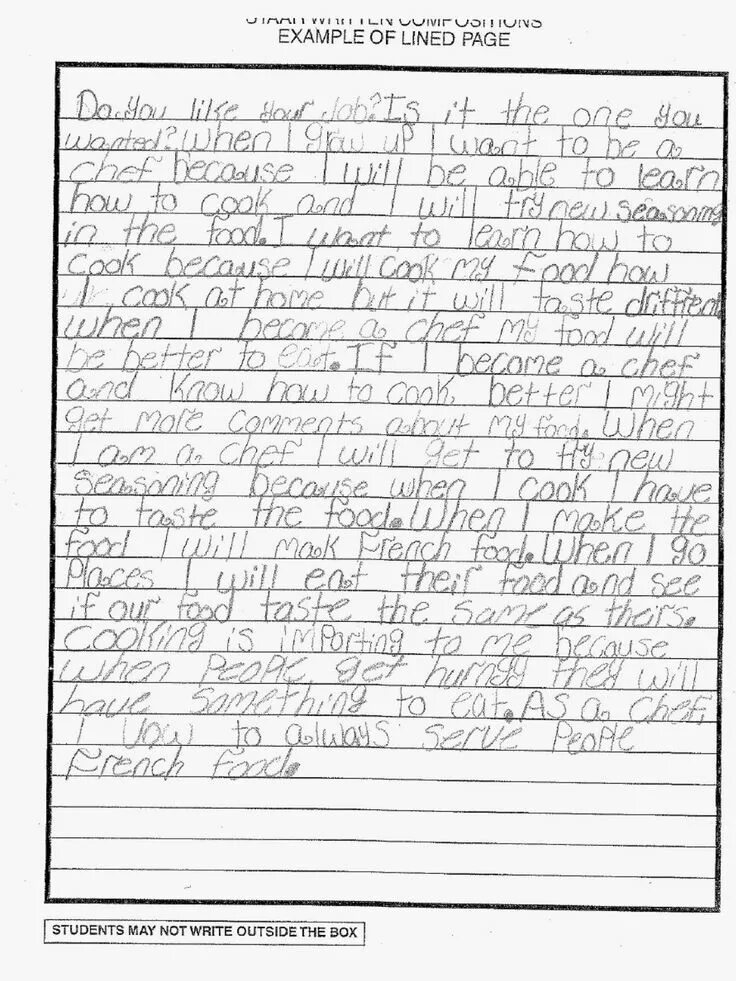 STAAR WRITTEN COMPOSITIONS
EXAMPLE OF LINED PAGE
Do you like your Job? Is it the one you
wanted? When I grow up I want to be a
chef because I will be able to learn
how to cook and I will try new seasoning
in the food. I want to learn how to
cook because I will cook my food how
I cook at home but it will taste driffrent
when I become a chef my food will
be better to eat. If I become a chef
and know how to cook better I might
get more comments about my food. When
I am a chef I will get to try new
seasoning because when I cook I have
to taste the food. When I make the
food I will mak French food. When I go
places I will eat their food and see
if our food taste the same as theirs.
Cooking is importing to me because
when people get hurngy they will
have something to eat. As a chef,
I vow to always serve people
French food.
STUDENTS MAY NOT WRITE OUTSIDE THE BOX